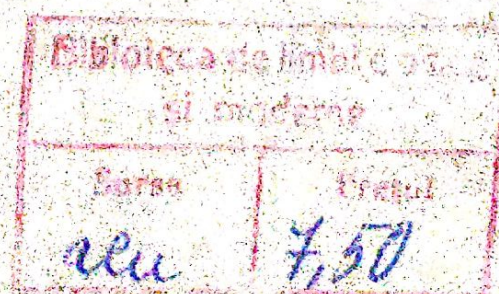 Biblioteca de limbi
si moderne
Sursa Prețul
7,50